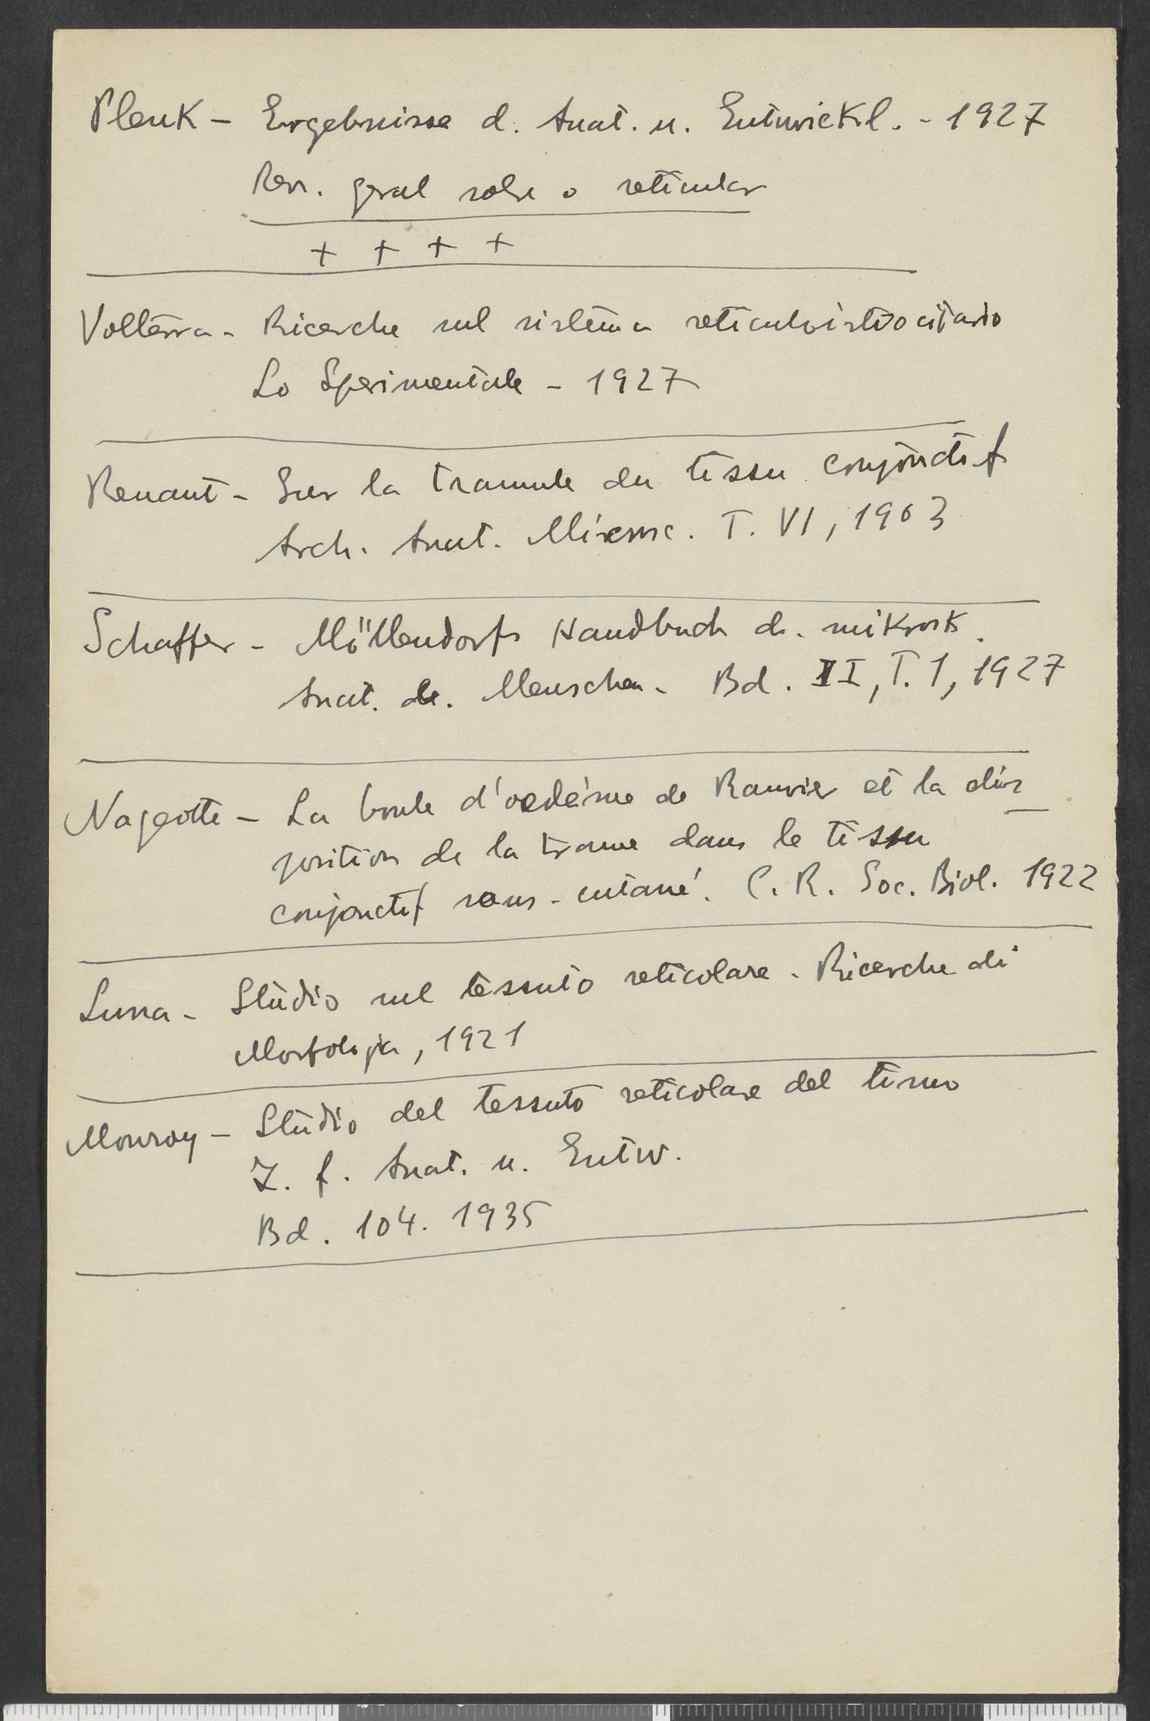 Plenk - Ergebnisse d. Anat. u. Entwickl. - 1927
Rev. geral sobre o reticular
+ + + +
Volterra - Ricerche sul sistema reticuloistiocitario
Lo Sperimentale - 1927
Renaut - Sur la tramule du tissu conjonctif
Arch. Anat. Microsc. T. VI, 1903
Schaffer - Möllendorfs Handbuch d. mikrosk.
Anat. d. Menschen. Bd. II, T. 1, 1927
Nageotte - La boule d'oedéme de Ranvier et la dis
position de la trame dans le tissu
conjonctif sous-cutané. C. R. Soc. Biol. 1922
Luna - Studio sul tessuto reticolare. Ricerche di
Morfologia, 1921
Monroy - Studio del tessuto reticolare del timo
Z. f. Anat. u. Entw.
Bd. 104. 1935